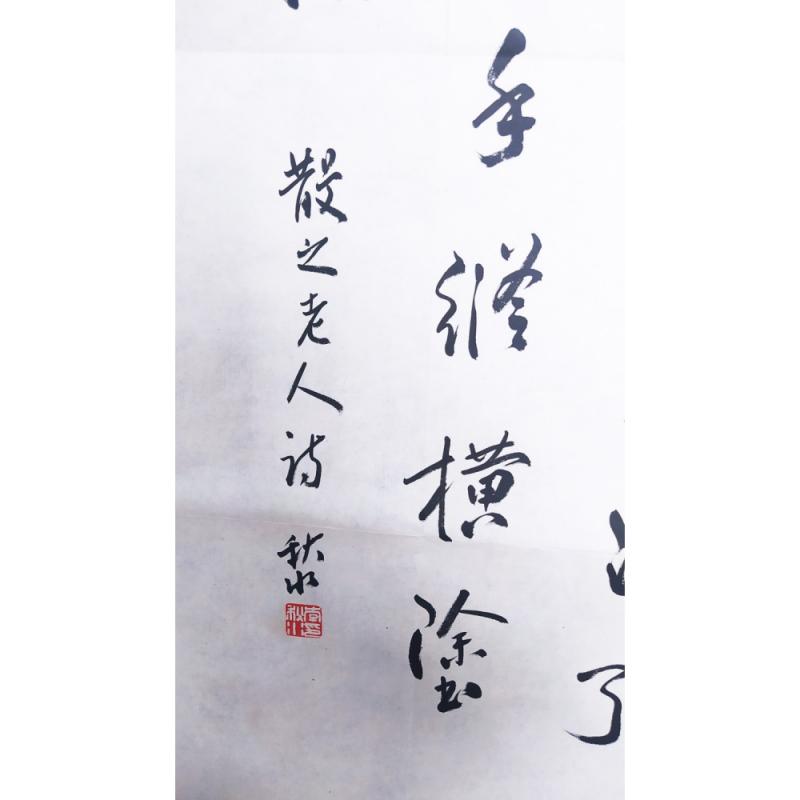 了
手縱橫塗
散之老人詩 秋水